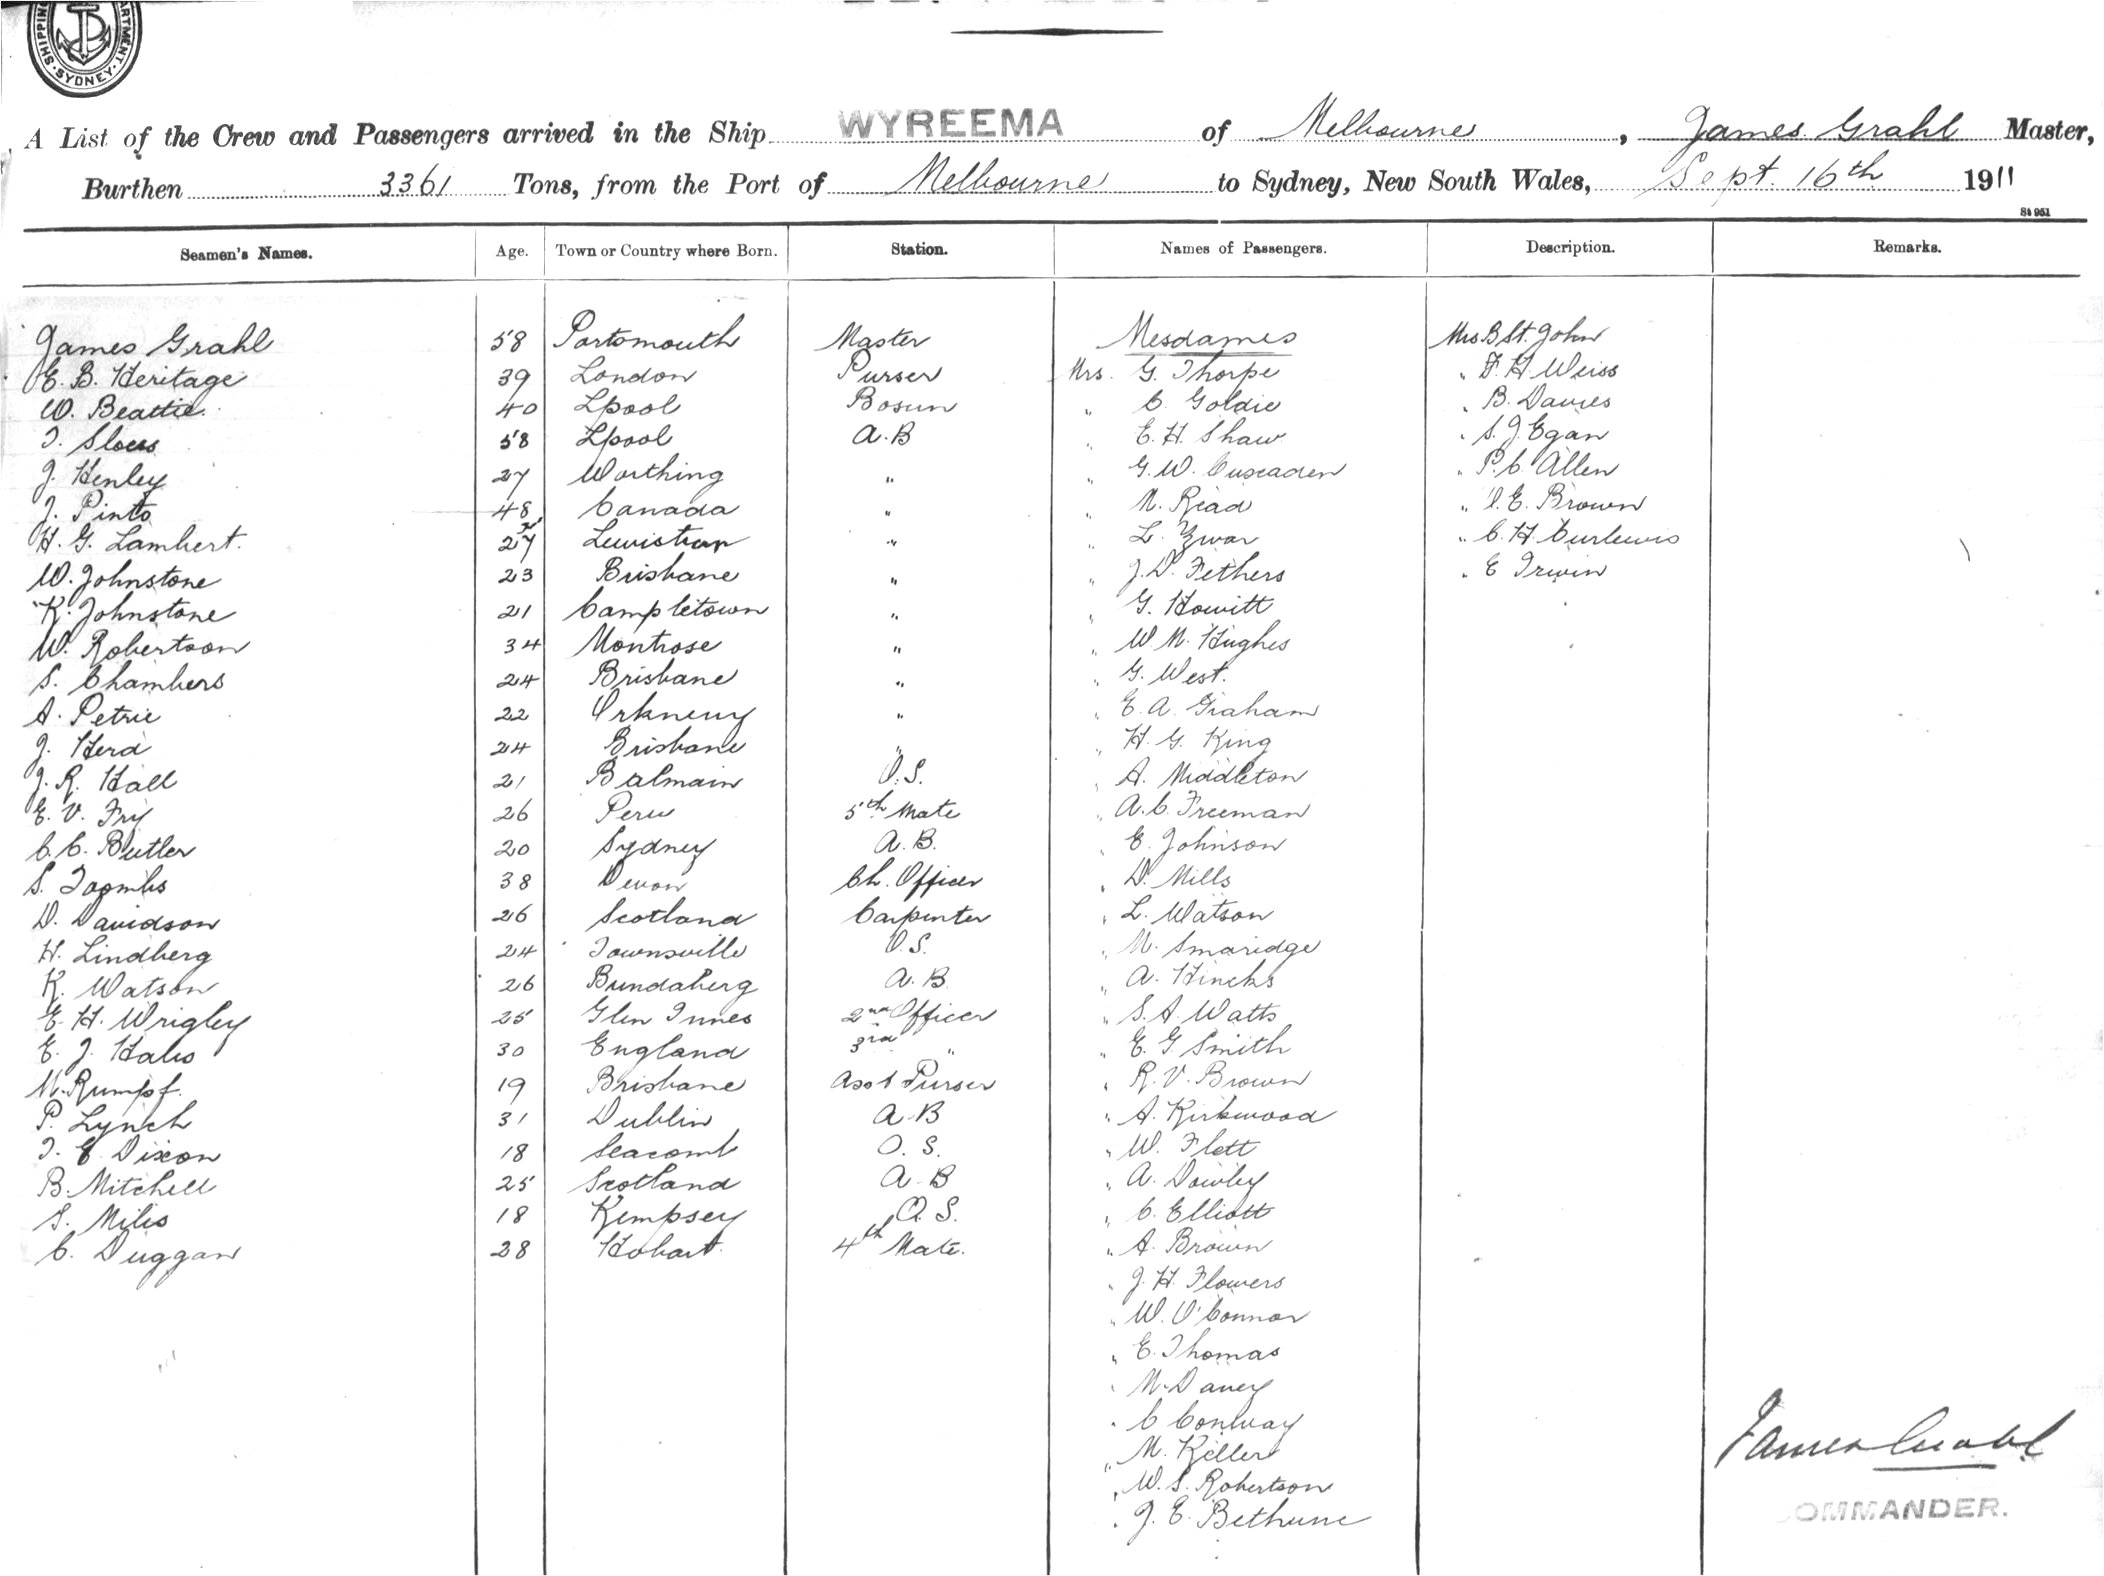 SHIPPIN ARTMENT · SYDNEY ·
A List of the Crew and Passengers arrived in the Ship WYREEMA of Melbourne, James Grahl Master,
Burthen 3361 Tons, from the Port of Melbourne to Sydney, New South Wales, Sept. 16th 1911
St 951
Seamen's Names. Age. Town or Country where Born. Station. Names of Passengers. Description. Remarks.
James Grahl 58 Portsmouth Master Mesdames Mrs B St. John
E. B. Heritage 39 London Purser Mrs. G. Thorpe " F. H. Weiss
W. Beattie 40 Lpool Bosun " C. Goldie " B. Davies
T. 58 Lpool A.B " E. H. Shaw " S. J. Egan
J. Henley 27 Worthing " " G. W. Cuscaden " P. C. Allen
J. Pinto 48 Canada " " M. Read " O. E. Brown
H. G. Lambert. 27 " " L. Zwar " C. H. Curlewis
W. Johnstone 23 Brisbane " " J. D. Fethers " E Irwin
K. Johnstone 21 Campletown " " G. Howitt
W. Robertson 34 Montrose " " W. M. Hughes
S. Chambers 24 Brisbane " " G. West.
A. Petrie 22 Orkneuy " " E. A. Graham
J. Herd 24 Brisbane " " H. G. King
J. R. Hall 21 Balmain O.S. " A. Middleton
E. V. Fry 26 Peru 5th Mate " A. C. Freeman
C. C. Butler 20 Sydney A.B. " E. Johnson
S. Toombs 38 Devon Ch. Officer " D. Mills
D. Davidson 26 Scotland Carpenter " L. Watson
H. Lindberg 24 Townsville O.S. " M. Smaridge
K. Watson 26 Bundaberg A.B. " A. Hincks
E. H. Wrigley 25 Glen Innes 2nd Officer " S. A. Watts
E. J. 30 England 3rd " " E. G. Smith
M. Rumpf. 19 Brisbane Asst Purser " R. V. Brown
P. Lynch 31 Dublin A.B " A. Kirkwood
T. E Dixon 18 Seacomb O.S. " W. Flett
B. Mitchell 25 Scotland A.B " A. Dowley
S. Milis 18 Kempsey O.S. " C. Elliott
C. Duggan 28 Hobart. 4th Mate. " A. Brown
" J. H. Flowers
" W. O'Connor
" E. Thomas
" M. Davey
" C Conway
" M. Keller
" W. S. Robertson
" J. E. Bethune
James Grahl
OMMANDER.